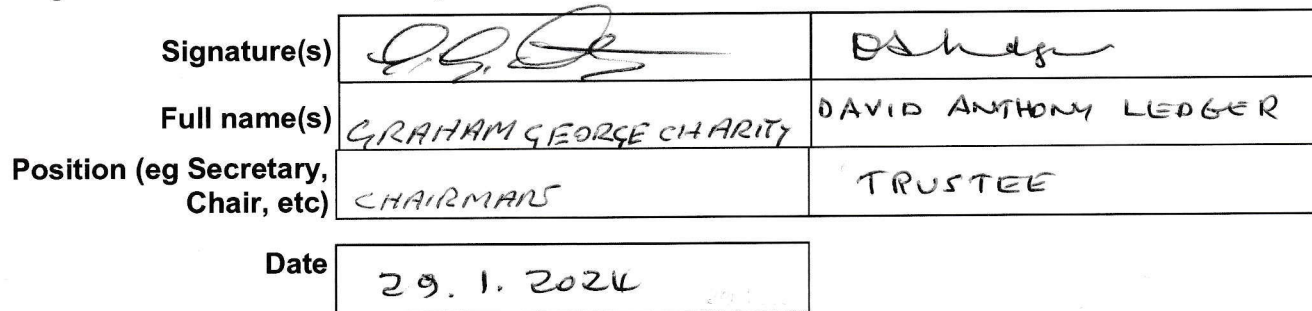 Signature(s)
Full name(s) GRAHAM GEORGE CHARITY DAVID ANTHONY LEDGER
Position (eg Secretary, Chair, etc) CHAIRMAN TRUSTEE
Date 29.1.2024